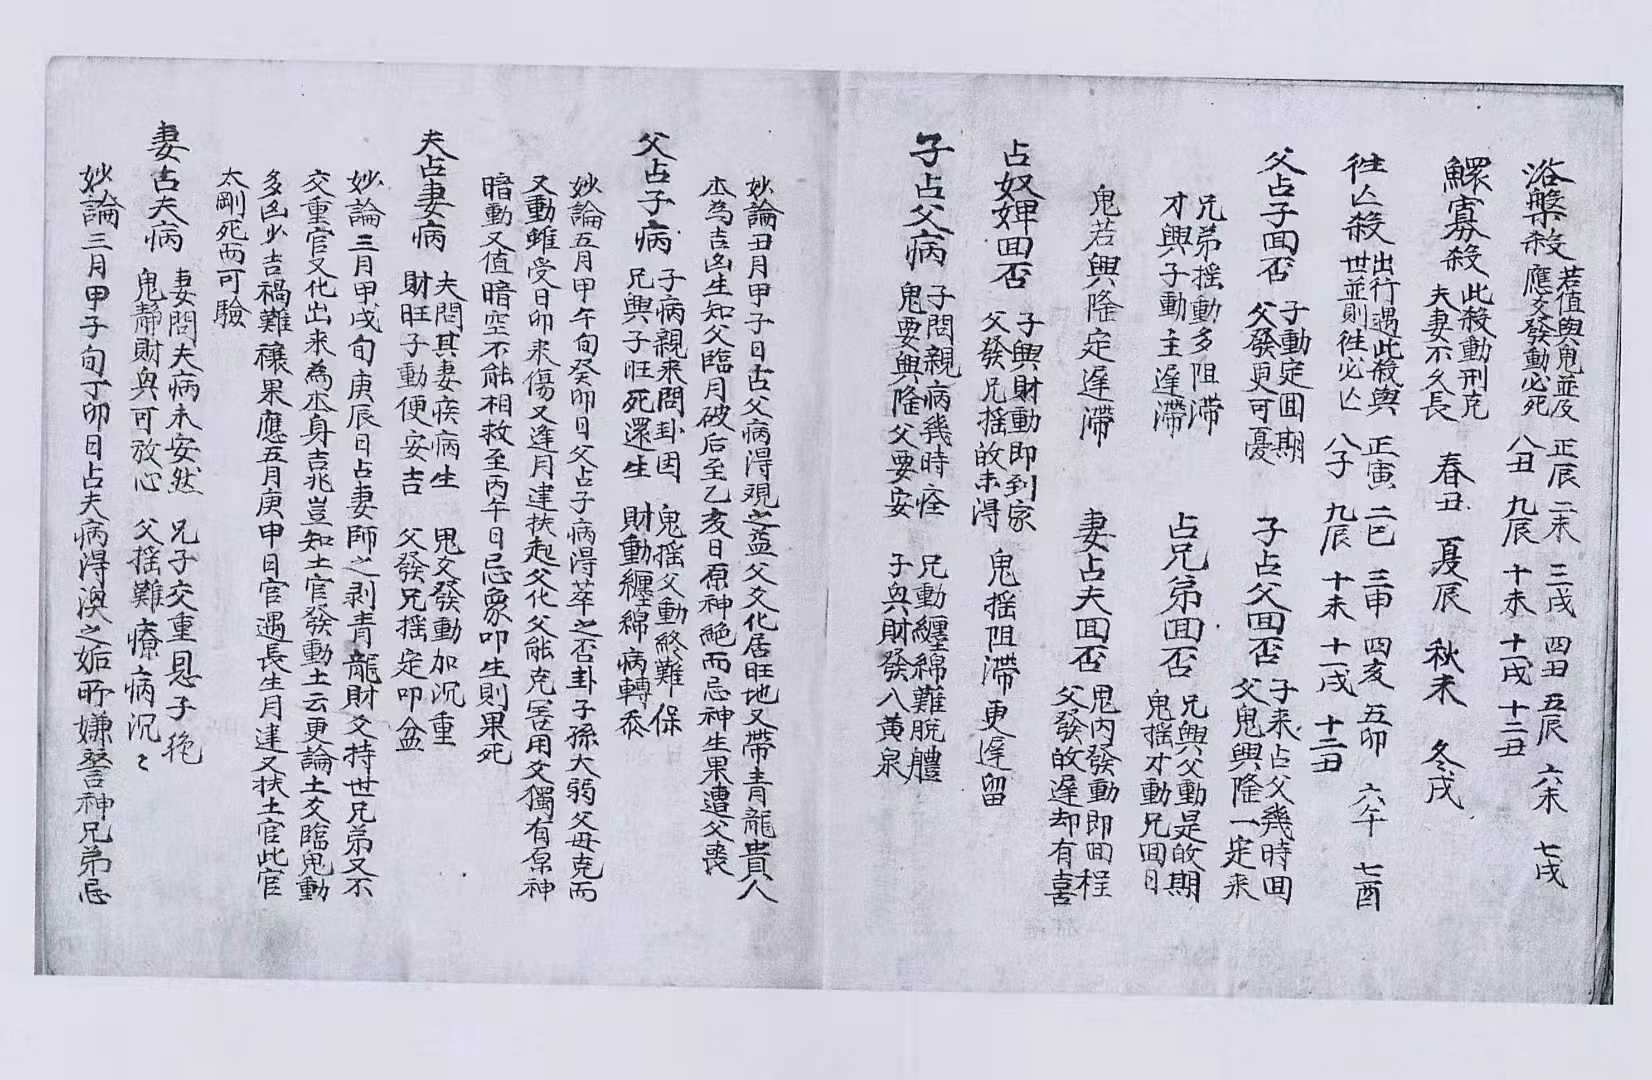 浴盤殺 若值與鬼並及 正辰 二未 三戌 四丑 五辰 六未 七戌
應爻發動必死 八丑 九辰 十未 十一戌 十二丑
鰥寡殺 此殺動刑克 春丑 夏辰 秋未 冬戌
夫妻不久長
往亡殺 出行遇此殺與 正寅 二巳 三申 四亥 五卯 六午 七酉
世並則往必亡 八子 九辰 十未 十一戌 十二丑
父占子回否 子動定回期
父發更可憂
子占父回否 子來占父幾時回
父鬼興隆一定來
兄弟摇動多阻滯
才興子動主遲滯
占兄弟回否 兄興父動是的期
鬼摇才動兄回日
鬼若興隆定遲滯
妻占夫回否 鬼內發動即回程
父發的遲却有喜
占奴婢回否 子興財動即到家
父發兄摇的未得
鬼摇阻滯更遲留
子占父病 子問親病幾時痊 兄動纏綿難脫體
鬼要興隆父要安 子與財發入黃泉
妙論丑月甲子日占父病得觀之益父爻化居旺地又帶青龍貴人
本為吉凶生知父臨月破后至乙亥日原神絶而忌神生果遭父喪
父占子病 子病親來問卦因 鬼摇父動終難保
兄興子旺死還生 財動纏綿病轉忝
妙論五月甲午旬癸卯日父占子病得萃之否卦子孫大弱父毋克而
又動雖受日卯來傷又逢月建扶起父化父能克害用爻獨有原神
暗動又值暗空不能相救至丙午日忌象叩生則果死
夫占妻病 夫問其妻疾病生 鬼爻發動加沉重
財旺子動便安吉 父發兄摇定叩盆
妙論三月甲戌旬庚辰日占妻師之剥青龍財爻持世兄弟又不
交重官又化出來為本身吉兆豈知土官發動土云更論土爻臨鬼動
多凶少吉禍難禳果應五月庚申日官遇長生月建又扶土官此官
太剛死而可驗
妻占夫病 妻問夫病未安然 兄子交重恩子抛
鬼静財興可放心 父摇難療病沉〻
妙論三月甲子旬丁卯日占夫病得渙之姤所嫌嗸神兄弟忌